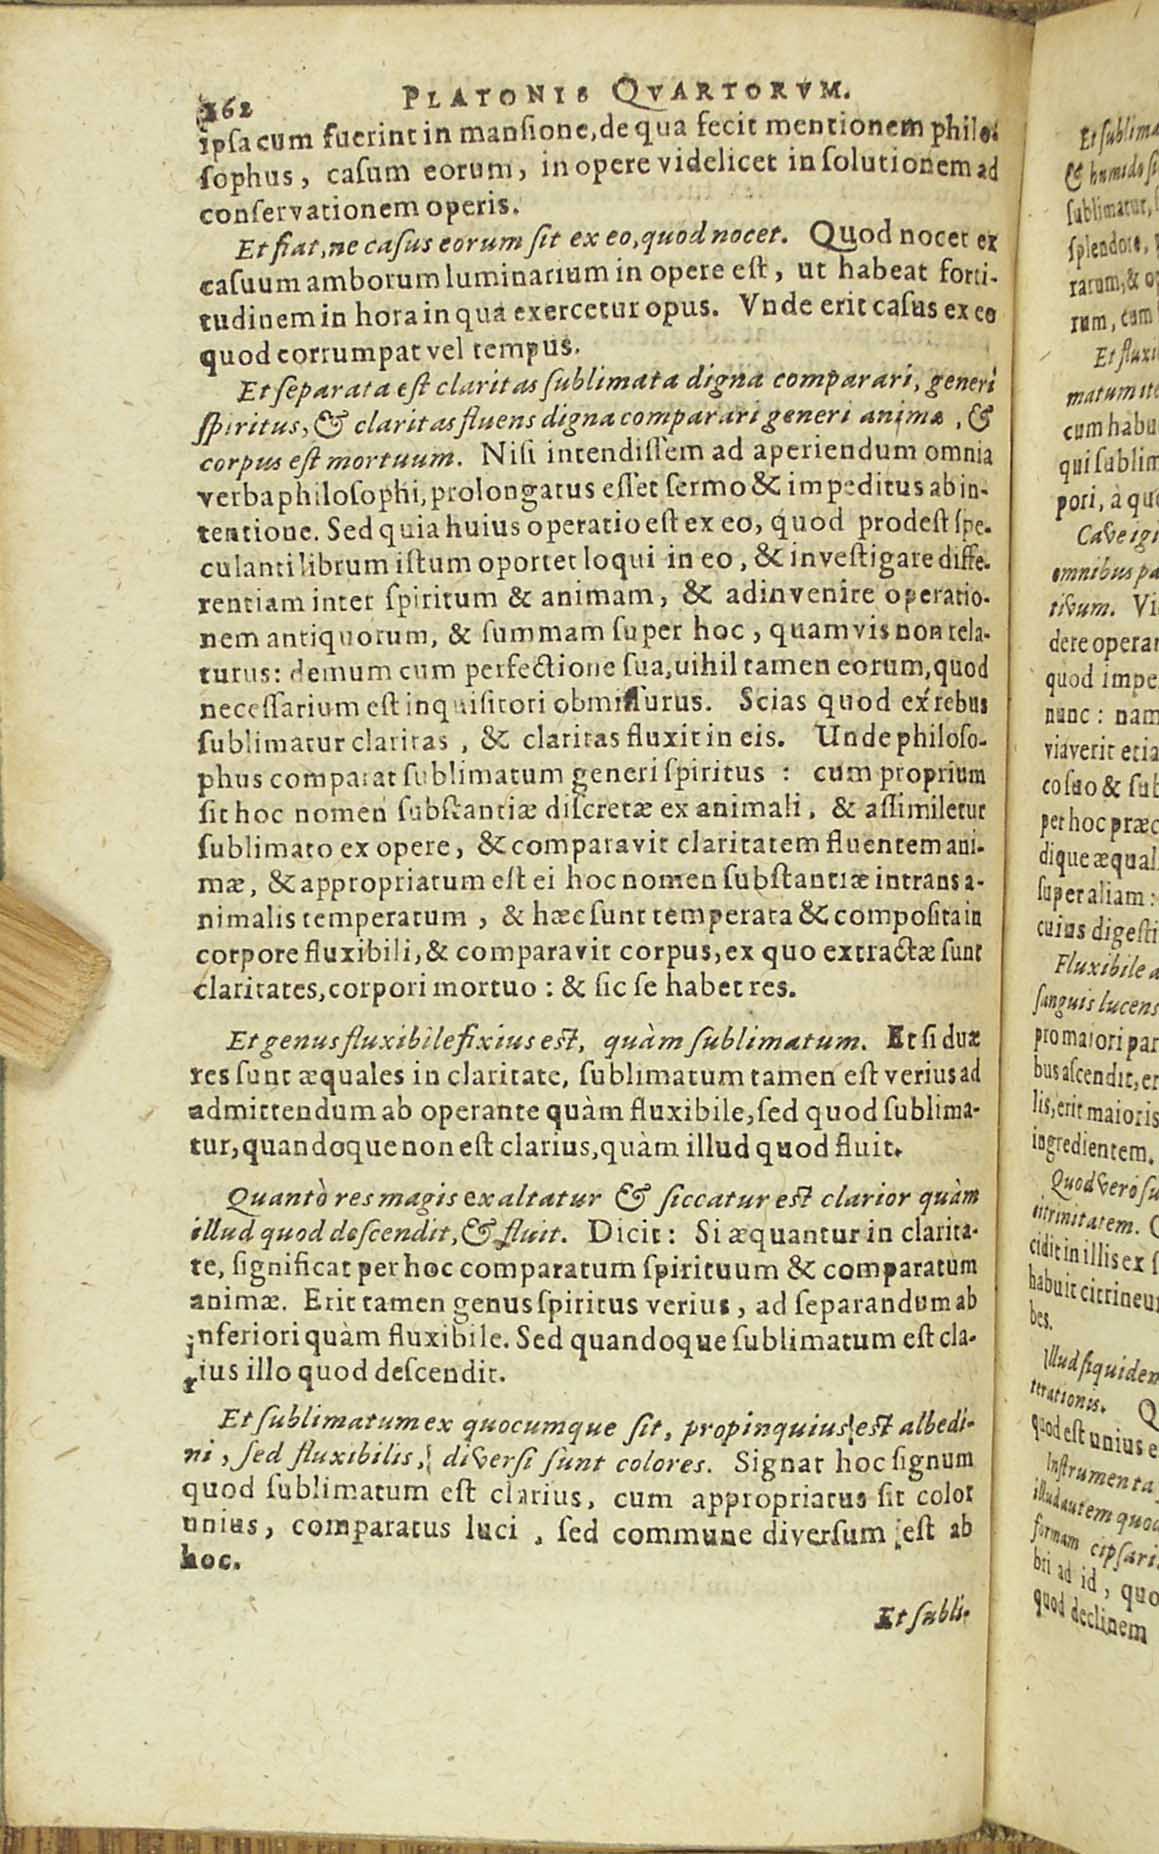 162 PLATONIS QVARTORVM.
ipsa cum fuerint in mansione, de qua fecit mentionem philo-
sophus, casum eorum, in opere videlicet in solutionem ad
conservationem operis.
Et fiat, ne casus eorum sit ex eo, quod nocet. Quod nocet ex
casuum amborum luminarium in opere est, ut habeat forti-
tudinem in hora in qua exercetur opus. Vnde erit casus ex eo
quod corrumpat vel tempus.
Et separata est claritas sublimata digna comparari, generi
spiritus, & claritas fluens digna comparari generi animæ, &
corpus est mortuum. Nisi intendissem ad aperiendum omnia
verba philosophi, prolongatus esset sermo & impeditus ab in-
tentione. Sed quia huius operatio est ex eo, quod prodest spe-
culanti librum istum oportet loqui in eo, & investigare diffe-
rentiam inter spiritum & animam, & adinvenire operatio-
nem antiquorum, & summam super hoc, quamvis non rela-
turus: demum cum perfectione sua, uihil tamen eorum, quod
necessarium est inquisitori obmissurus. Scias quod ex rebus
sublimatur claritas, & claritas fluxit in eis. Unde philoso-
phus comparat sublimatum generi spiritus: cum proprium
sit hoc nomen substantiæ discretæ ex animali, & assimiletur
sublimato ex opere, & comparavit claritatem fluentem ani-
mæ, & appropriatum est ei hoc nomen substantiæ intrans a-
nimalis temperatum, & hæc sunt temperata & composita in
corpore fluxibili, & comparavit corpus, ex quo extractæ sunt
claritates, corpori mortuo: & sic se habet res.
Et genus fluxibile fixius est, quàm sublimatum. Et si duæ
res sunt æquales in claritate, sublimatum tamen est verius ad
admittendum ab operante quàm fluxibile, sed quod sublima-
tur, quandoque non est clarius, quàm illud quod fluit.
Quantò res magis exaltatur & siccatur est clarior quàm
illud quod descendit, & fluit. Dicit: Si æquantur in clarita-
te, significat per hoc comparatum spirituum & comparatum
animæ. Erit tamen genus spiritus verius, ad separandum ab
inferiori quàm fluxibile. Sed quandoque sublimatum est cla-
rius illo quod descendit.
Et sublimatum ex quocumque sit, propinquius est albedi-
ni, sed fluxibilis, diversi sunt colores. Signat hoc signum
quod sublimatum est clarius, cum appropriatus sit color
unius, comparatus luci, sed commune diversum est ab
hoc.
Et subli-
Et sublima
& humido si
sublimatur,
splendore,
rarum, & op
rum, cum
Et fluxi
matum ite
cum habu
qui sublim
pori, à quo
Cave igi
omnibus pa
tivum. Vi
dere operar
quod impe
nunc: nam
viaverit etia
co suo & sub
per hoc præc
dique æqual
super aliam:
cuius digesti
Fluxibile a
sanguis lucens
pro maiori par
bus ascendit, er
lis, erit maioris
ingredientem.
Quod vero su
citrinitatem.
cidit in illis ex s
habuit citrineu
bes.
Illud siquidem
terationis. Q
quod est unius e
Instrumenta
illud autem quod
formam cipsari
bri ad id, quo
quod declinem